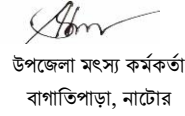 উপজেলা মৎস্য কর্মকর্তা
বাগাতিপাড়া, নাটোর